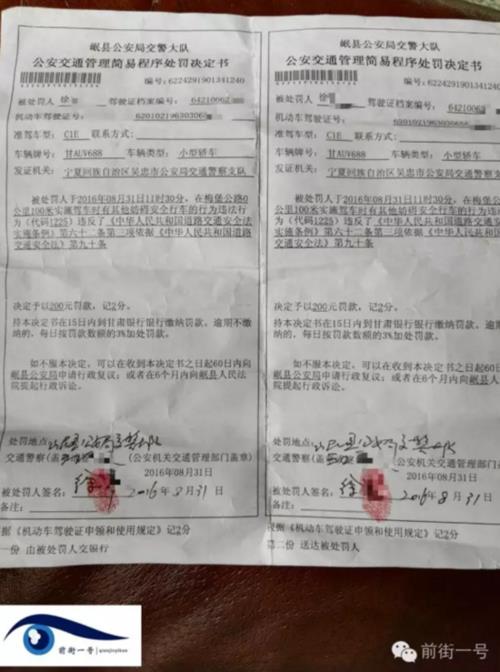 岷县公安局交警大队
公安交通管理简易程序处罚决定书
编号:6224291901341240
被处罚人:徐
驾驶证档案编号:64210062
机动车驾驶证号:62010219630306
准驾车型:C1E 联系方式:
车辆牌号:甘AUV688 车辆类型:小型轿车
发证机关:宁夏回族自治区吴忠市公安局交通警察支队
被处罚人于2016年08月31日11时30分,在梅堡公路0
公里100米实施驾车时有其他妨碍安全行车的行为违法行
为(代码1225)违反了《中华人民共和国道路交通安全法
实施条例》第六十二条第三项依据《中华人民共和国道路
交通安全法》第九十条
决定予以200元罚款,记2分。
持本决定书在15日内到甘肃银行银行缴纳罚款。逾期不缴
纳的,每日按罚款数额的3%加处罚款。
如不服本决定,可以在收到本决定书之日起60日内向
岷县公安局申请行政复议;或者在6个月内向岷县人民法
院提起行政诉讼。
处罚地点:
交通警察(盖
(公安机关交通管理部门盖章)
2016年08月31日
被处罚人签名:徐
2016 8月31日
备注:
根据《机动车驾驶证申领和使用规定》记2分
一份 由被处罚人交银行
岷县公安局交警大队
公安交通管理简易程序处罚决定书
编号:6224291901341240
被处罚人:徐
驾驶证档案编号:6421006
机动车驾驶证号:
准驾车型:C1E 联系方式:
车辆牌号:甘AUV688 车辆类型:小型轿车
发证机关:宁夏回族自治区吴忠市公安局交通警察支队
被处罚人于2016年08月31日11时30分,在梅堡公路0
公里100米实施驾车时有其他妨碍安全行车的行为违法行
为(代码1225)违反了《中华人民共和国道路交通安全法
实施条例》第六十二条第三项依据《中华人民共和国道路
交通安全法》第九十条
决定予以200元罚款,记2分。
持本决定书在15日内到甘肃银行银行缴纳罚款。逾期不缴
纳的,每日按罚款数额的3%加处罚款。
如不服本决定,可以在收到本决定书之日起60日内向
岷县公安局申请行政复议;或者在6个月内向岷县人民法
院提起行政诉讼。
处罚地点:
交通警察(盖
(公安机关交通管理部门盖章)
2016年08月31日
被处罚人签名:徐
2016年8月31日
备注:
根据《机动车驾驶证申领和使用规定》记2分
第二份 送达被处罚人
前街一号
前街一号